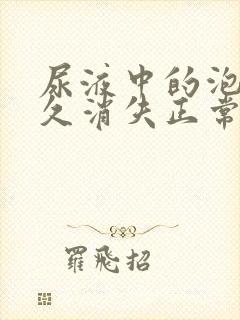 尿液中的泡
久消失正常
羅飛招